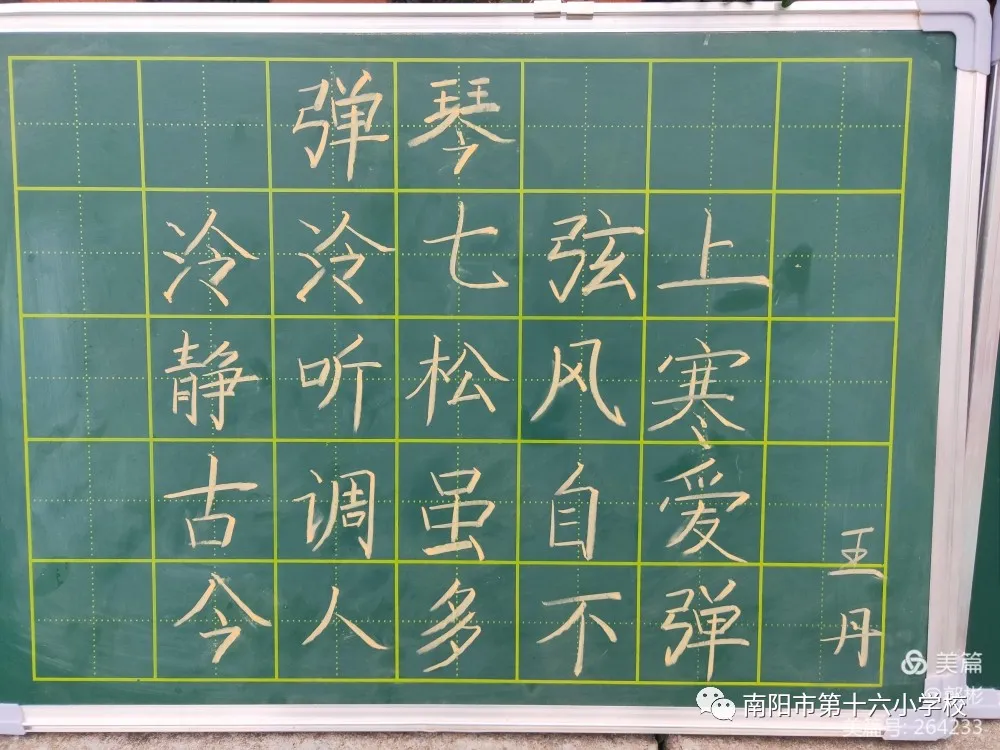 弹琴
泠泠七弦上
静听松风寒
古调虽自爱
今人多不弹
王丹
美篇
南阳市第十六小学校
264233